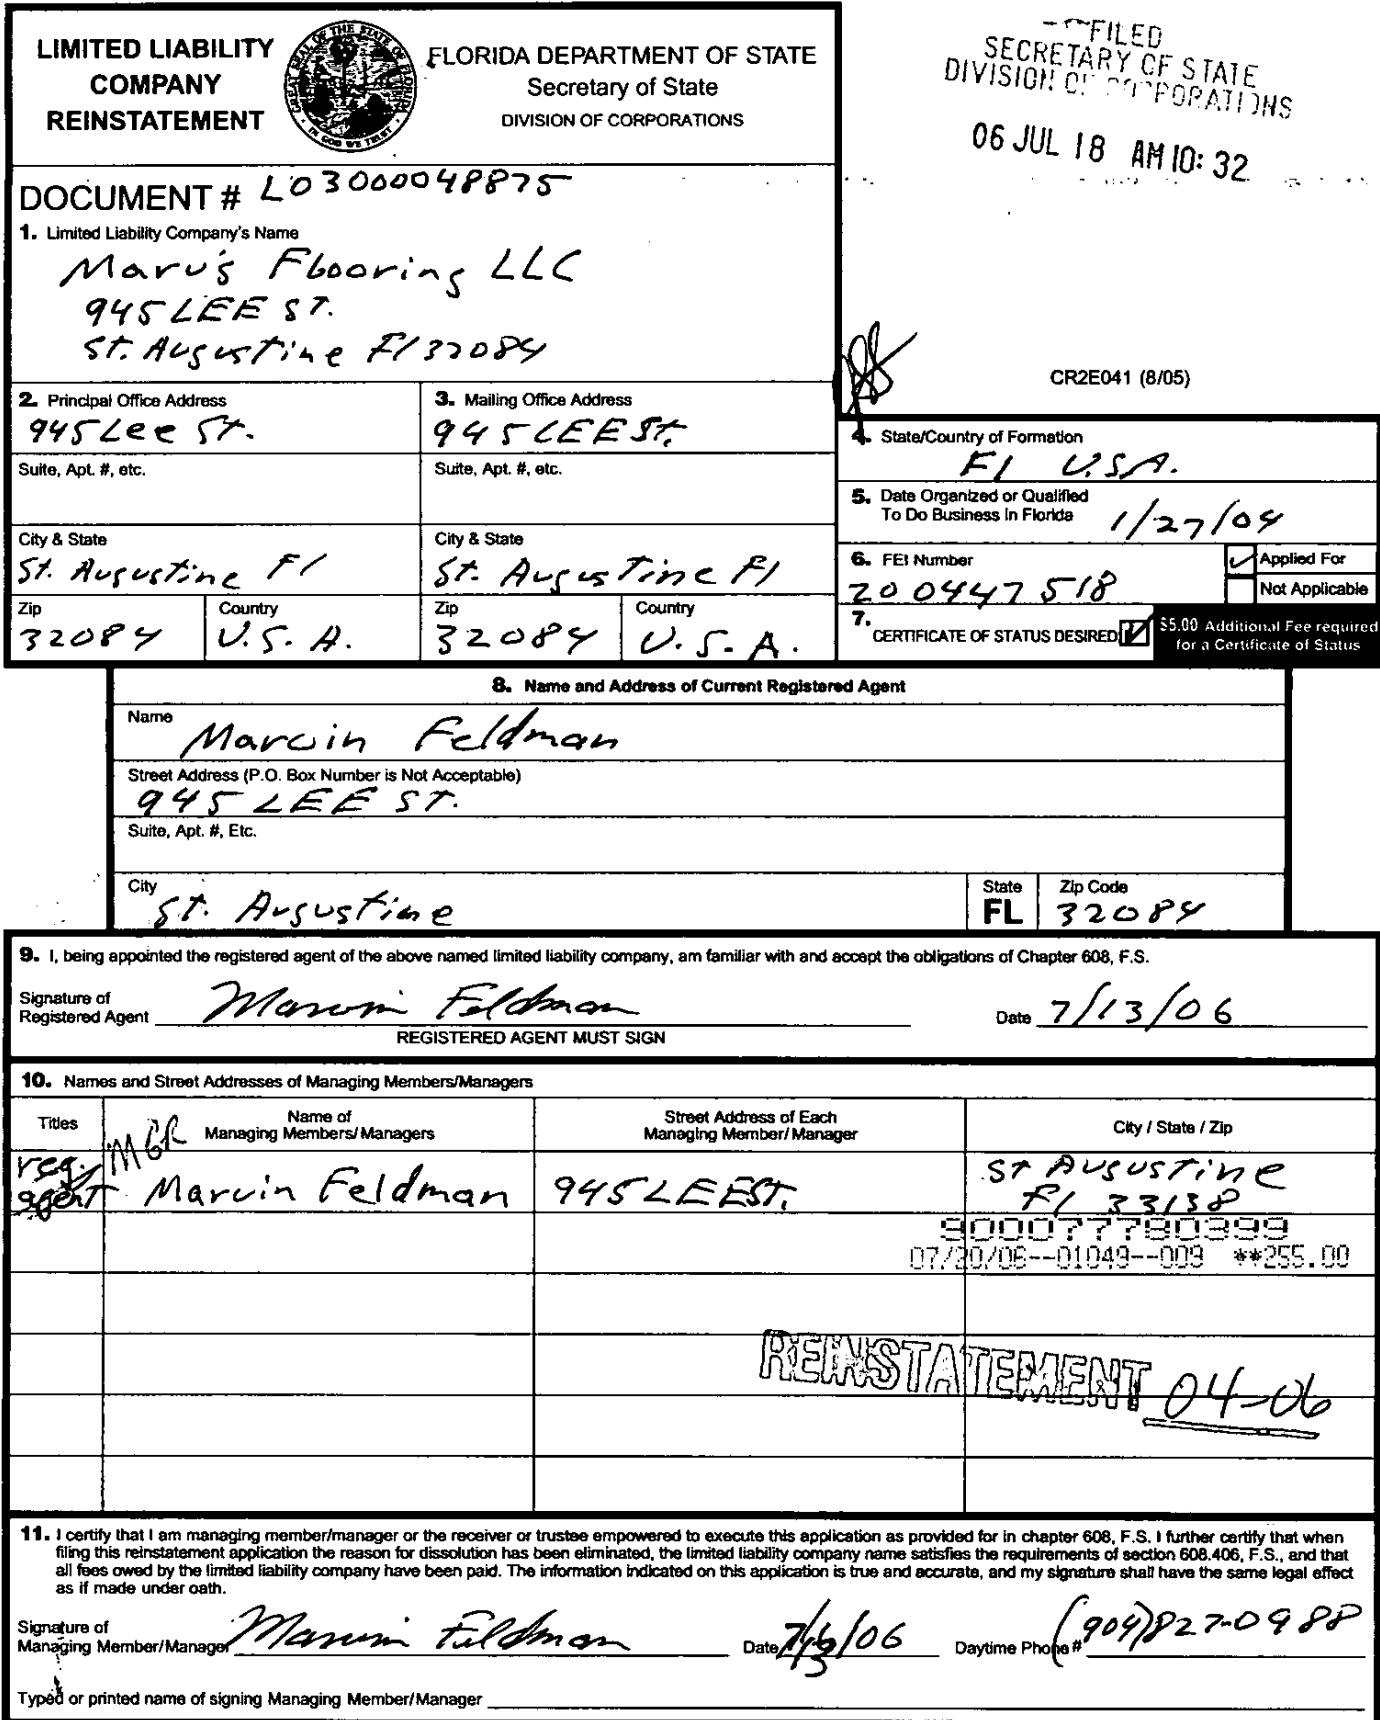 LIMITED LIABILITY
COMPANY
REINSTATEMENT
GREAT SEAL OF THE STATE OF FLORIDA
IN GOD WE TRUST
FLORIDA DEPARTMENT OF STATE
Secretary of State
DIVISION OF CORPORATIONS
FILED
SECRETARY OF STATE
DIVISION OF CORPORATIONS
06 JUL 18 AM 10: 32
DOCUMENT # L03000048875
1. Limited Liability Company's Name
Marv's Flooring LLC
945 LEE ST.
St. Augustine Fl 32084
CR2E041 (8/05)
2. Principal Office Address
945 Lee St.
3. Mailing Office Address
945 LEE St.
Suite, Apt. #, etc.
Suite, Apt. #, etc.
City & State
St. Augustine Fl
City & State
St. Augustine Fl
Zip
32084
Country
U.S.A.
Zip
32084
Country
U.S.A.
4. State/Country of Formation
Fl U.S.A.
5. Date Organized or Qualified
To Do Business In Florida 1/27/04
6. FEI Number
20 0447518
Applied For
Not Applicable
7. CERTIFICATE OF STATUS DESIRED
$5.00 Additional Fee required
for a Certificate of Status
8. Name and Address of Current Registered Agent
Name
Marvin Feldman
Street Address (P.O. Box Number is Not Acceptable)
945 LEE ST.
Suite, Apt. #, Etc.
City
St. Augustine
State
FL
Zip Code
32084
9. I, being appointed the registered agent of the above named limited liability company, am familiar with and accept the obligations of Chapter 608, F.S.
Signature of
Registered Agent Marvin Feldman
Date 7/13/06
REGISTERED AGENT MUST SIGN
10. Names and Street Addresses of Managing Members/Managers
Titles
Name of
Managing Members/Managers
Street Address of Each
Managing Member/Manager
City / State / Zip
MGR
reg.
agent Marvin Feldman 945 LEE ST.
St Augustine
Fl 33138
900077780399
07/20/06--01049--009 **255.00
REINSTATEMENT 04-06
11. I certify that I am managing member/manager or the receiver or trustee empowered to execute this application as provided for in chapter 608, F.S. I further certify that when
filing this reinstatement application the reason for dissolution has been eliminated, the limited liability company name satisfies the requirements of section 608.406, F.S., and that
all fees owed by the limited liability company have been paid. The information indicated on this application is true and accurate, and my signature shall have the same legal effect
as if made under oath.
Signature of
Managing Member/Manager Marvin Feldman
Date 7/13/06
Daytime Phone # (904)827-0988
Typed or printed name of signing Managing Member/Manager